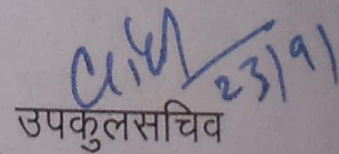 23/9/
उपकुलसचिव